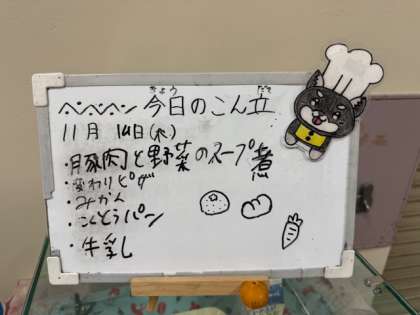 ペペペン 今日のこん立
きょう だて
11月 14日(水)
・豚肉と野菜のスープ煮
・変わりピザ
・みかん
・こくとうパン
・牛乳